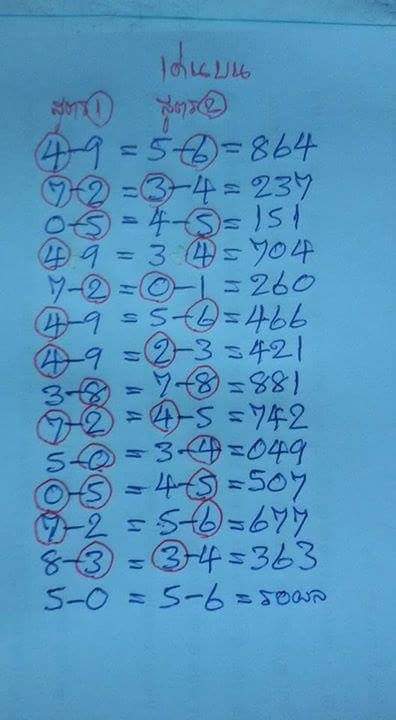 เด่นบน
สูตร 1 สูตร 2
4-9 = 5-6 = 864
7-2 = 3-4 = 237
0-5 = 4-5 = 151
4 9 = 3 4 = 704
7-2 = 0-1 = 260
4-9 = 5-6 = 466
4-9 = 2-3 = 421
3-8 = 7-8 = 881
7-2 = 4-5 = 742
5-0 = 3-4 = 049
0-5 = 4-5 = 507
7-2 = 5-6 = 677
8-3 = 3-4 = 363
5-0 = 5-6 = รอผล